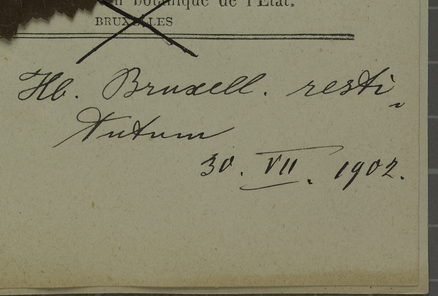 botanique de l'Etat.
BRUXELLES
Hb. Bruxell. resti-
tutum
30. VII. 1902.